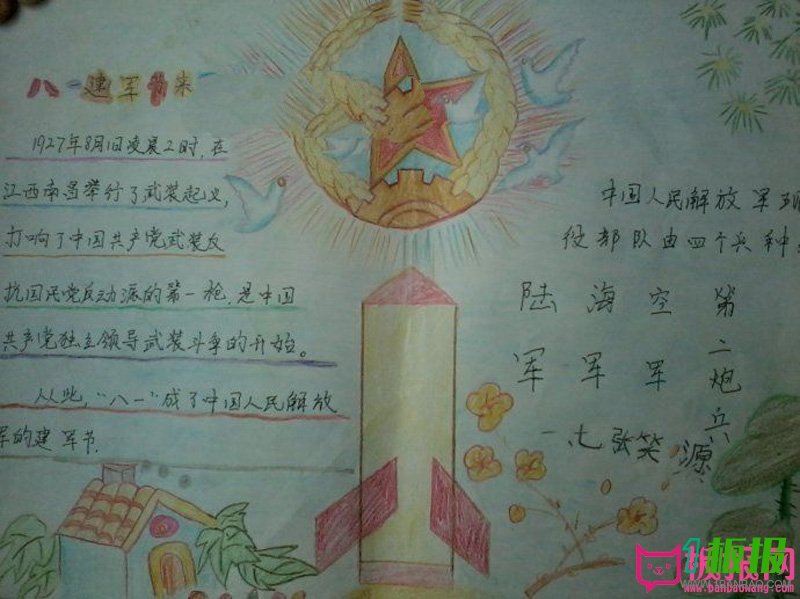 八一建军节来
1927年8月1日凌晨2时,在
江西南昌举行了武装起义,
打响了中国共产党武装反
抗国民党反动派的第一枪,是中国
共产党独立领导武装斗争的开始。
从此,"八一"成了中国人民解放
军的建军节
中国人民解放军现
役部队由四个兵种
陆军
海军
空军
第二炮兵
一、七张笑源
板报网
www.banbaowang.com
板报